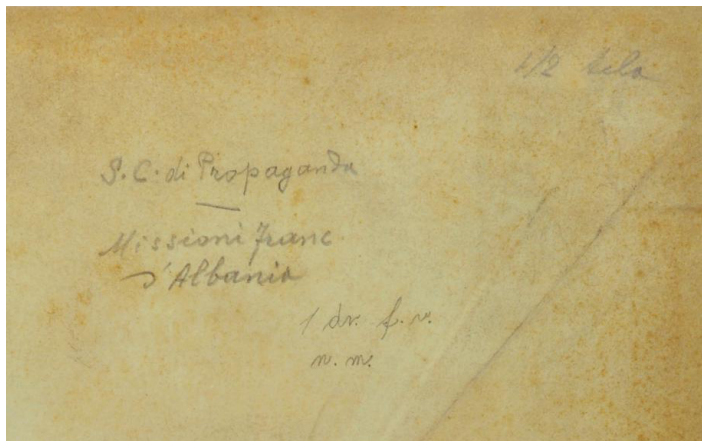 1/2 tela
S. C. di Propaganda
Missioni franc
d'Albania
1 dr. f. v.
n. m.